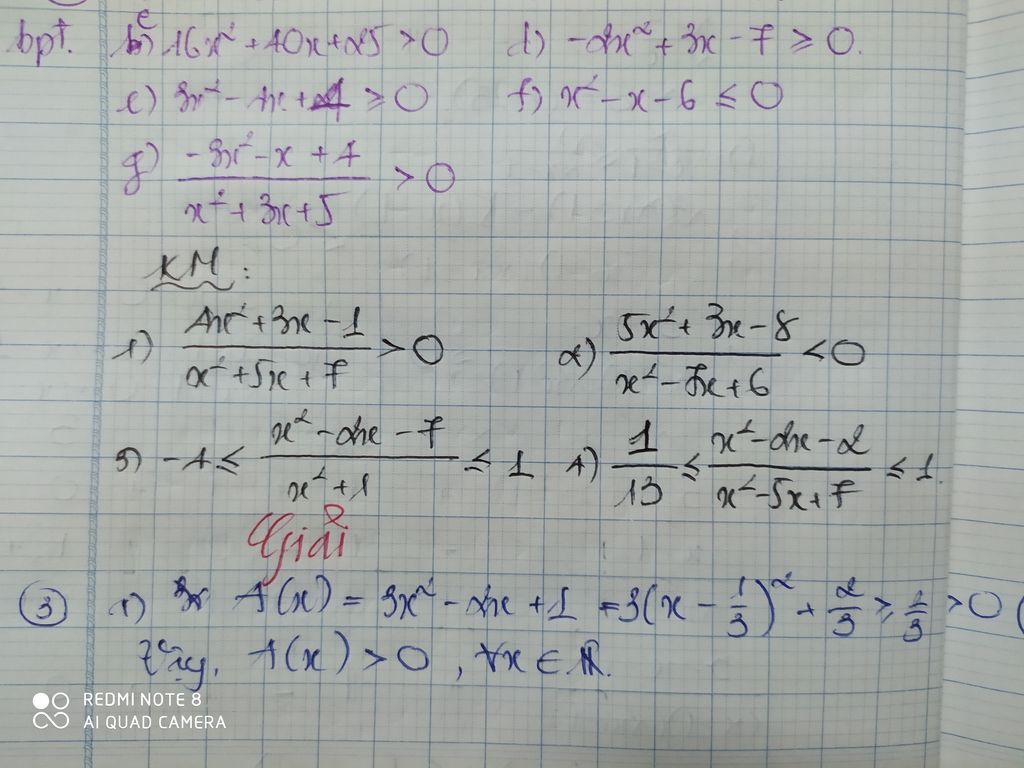 bpt. c) 16x² + 40x + 25 > 0 d) -2x² + 3x - 7 ≥ 0.
e) 3x² - 4x + 4 ≥ 0 f) x² - x - 6 ≤ 0
g) (-3x² - x + 4)/(x² + 3x + 5) > 0
KM:
1) (4x² + 3x - 1)/(x² + 5x + 7) > 0 2) (5x² + 3x - 8)/(x² - 7x + 6) < 0
3) -4 ≤ (x² - 2x - 7)/(x² + 1) ≤ 1 4) 1/13 ≤ (x² - 2x - 2)/(x² - 5x + 7) ≤ 1.
Giải
③ 1) A(x) = 3x² - 2x + 1 = 3(x - 1/3)² + 2/3 ≥ 1/3 > 0 (
Vậy, A(x) > 0, ∀x ∈ R.
REDMI NOTE 8
AI QUAD CAMERA